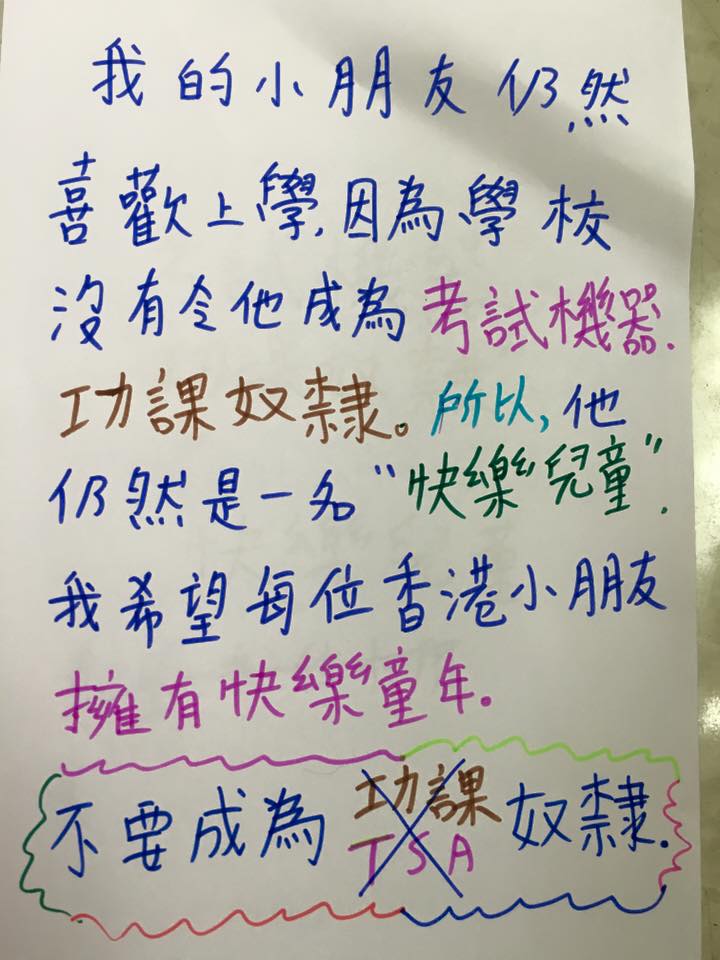 我的小朋友仍然
喜歡上學,因為學校
沒有令他成為考試機器.
功課奴隸。所以,他
仍然是一名"快樂兒童".
我希望每位香港小朋友
擁有快樂童年。
不要成為功課奴隸.
TSA